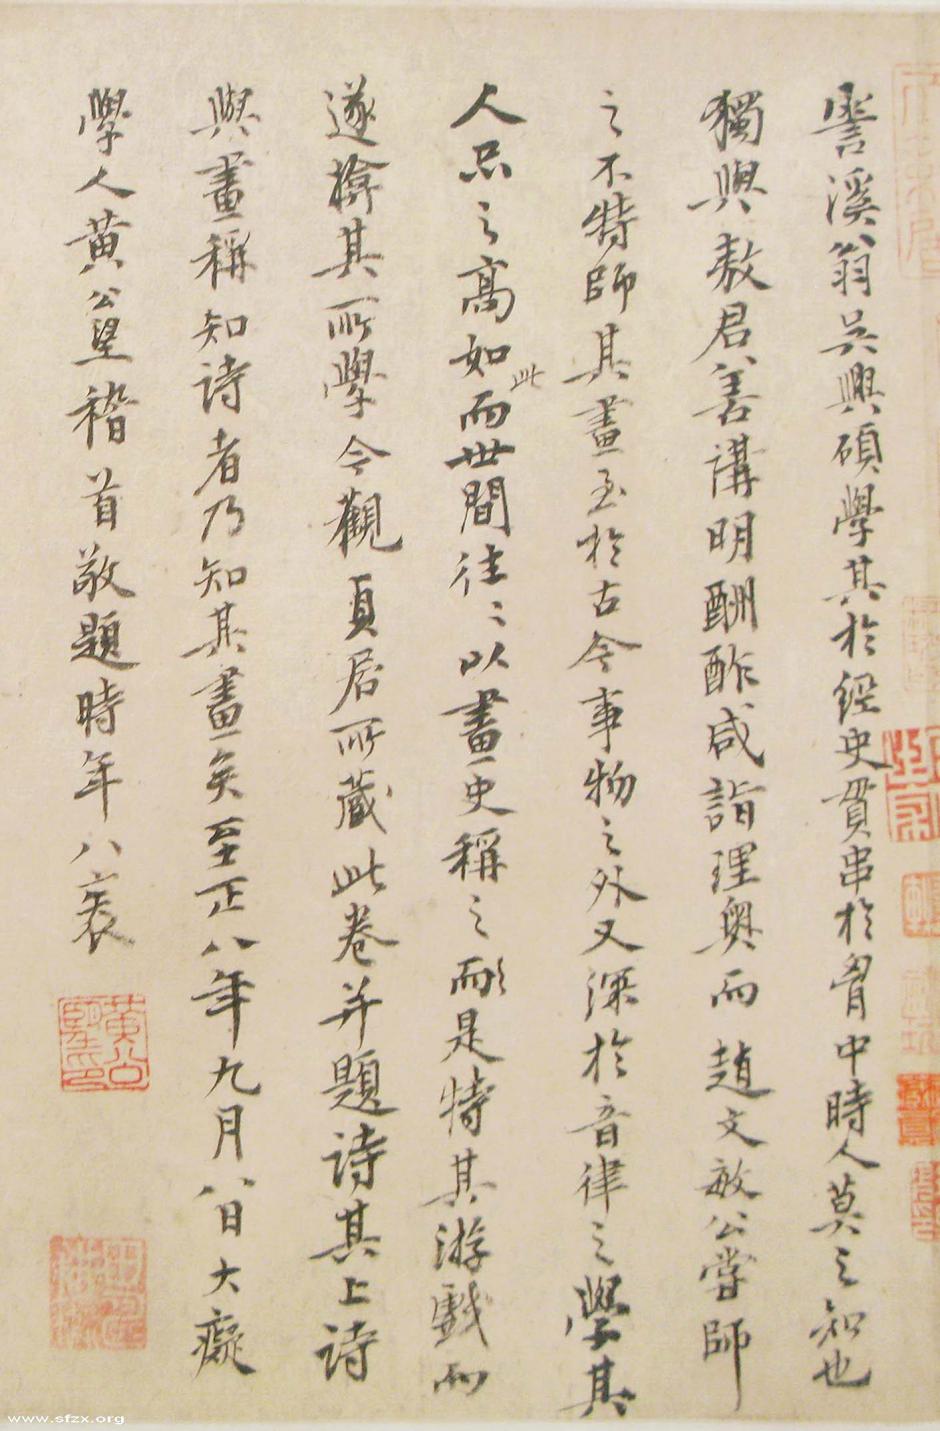 霅溪翁吳興碩學其於經史貫串於胷中時人莫之知也
獨與敖君善講明酬酢咸詣理奧而趙文敏公嘗師
之不特師其畫至於古今事物之外又深於音律之學其
人品之高如此而世間往〻以畫史稱之是特其游戲而
遂揜其所學今觀貞居所藏此卷并題詩其上詩
與畫稱知詩者乃知其畫矣至正八年九月八日大癡
學人黄公望稽首敬題時年八袠
黄公望印
www.sfzx.org